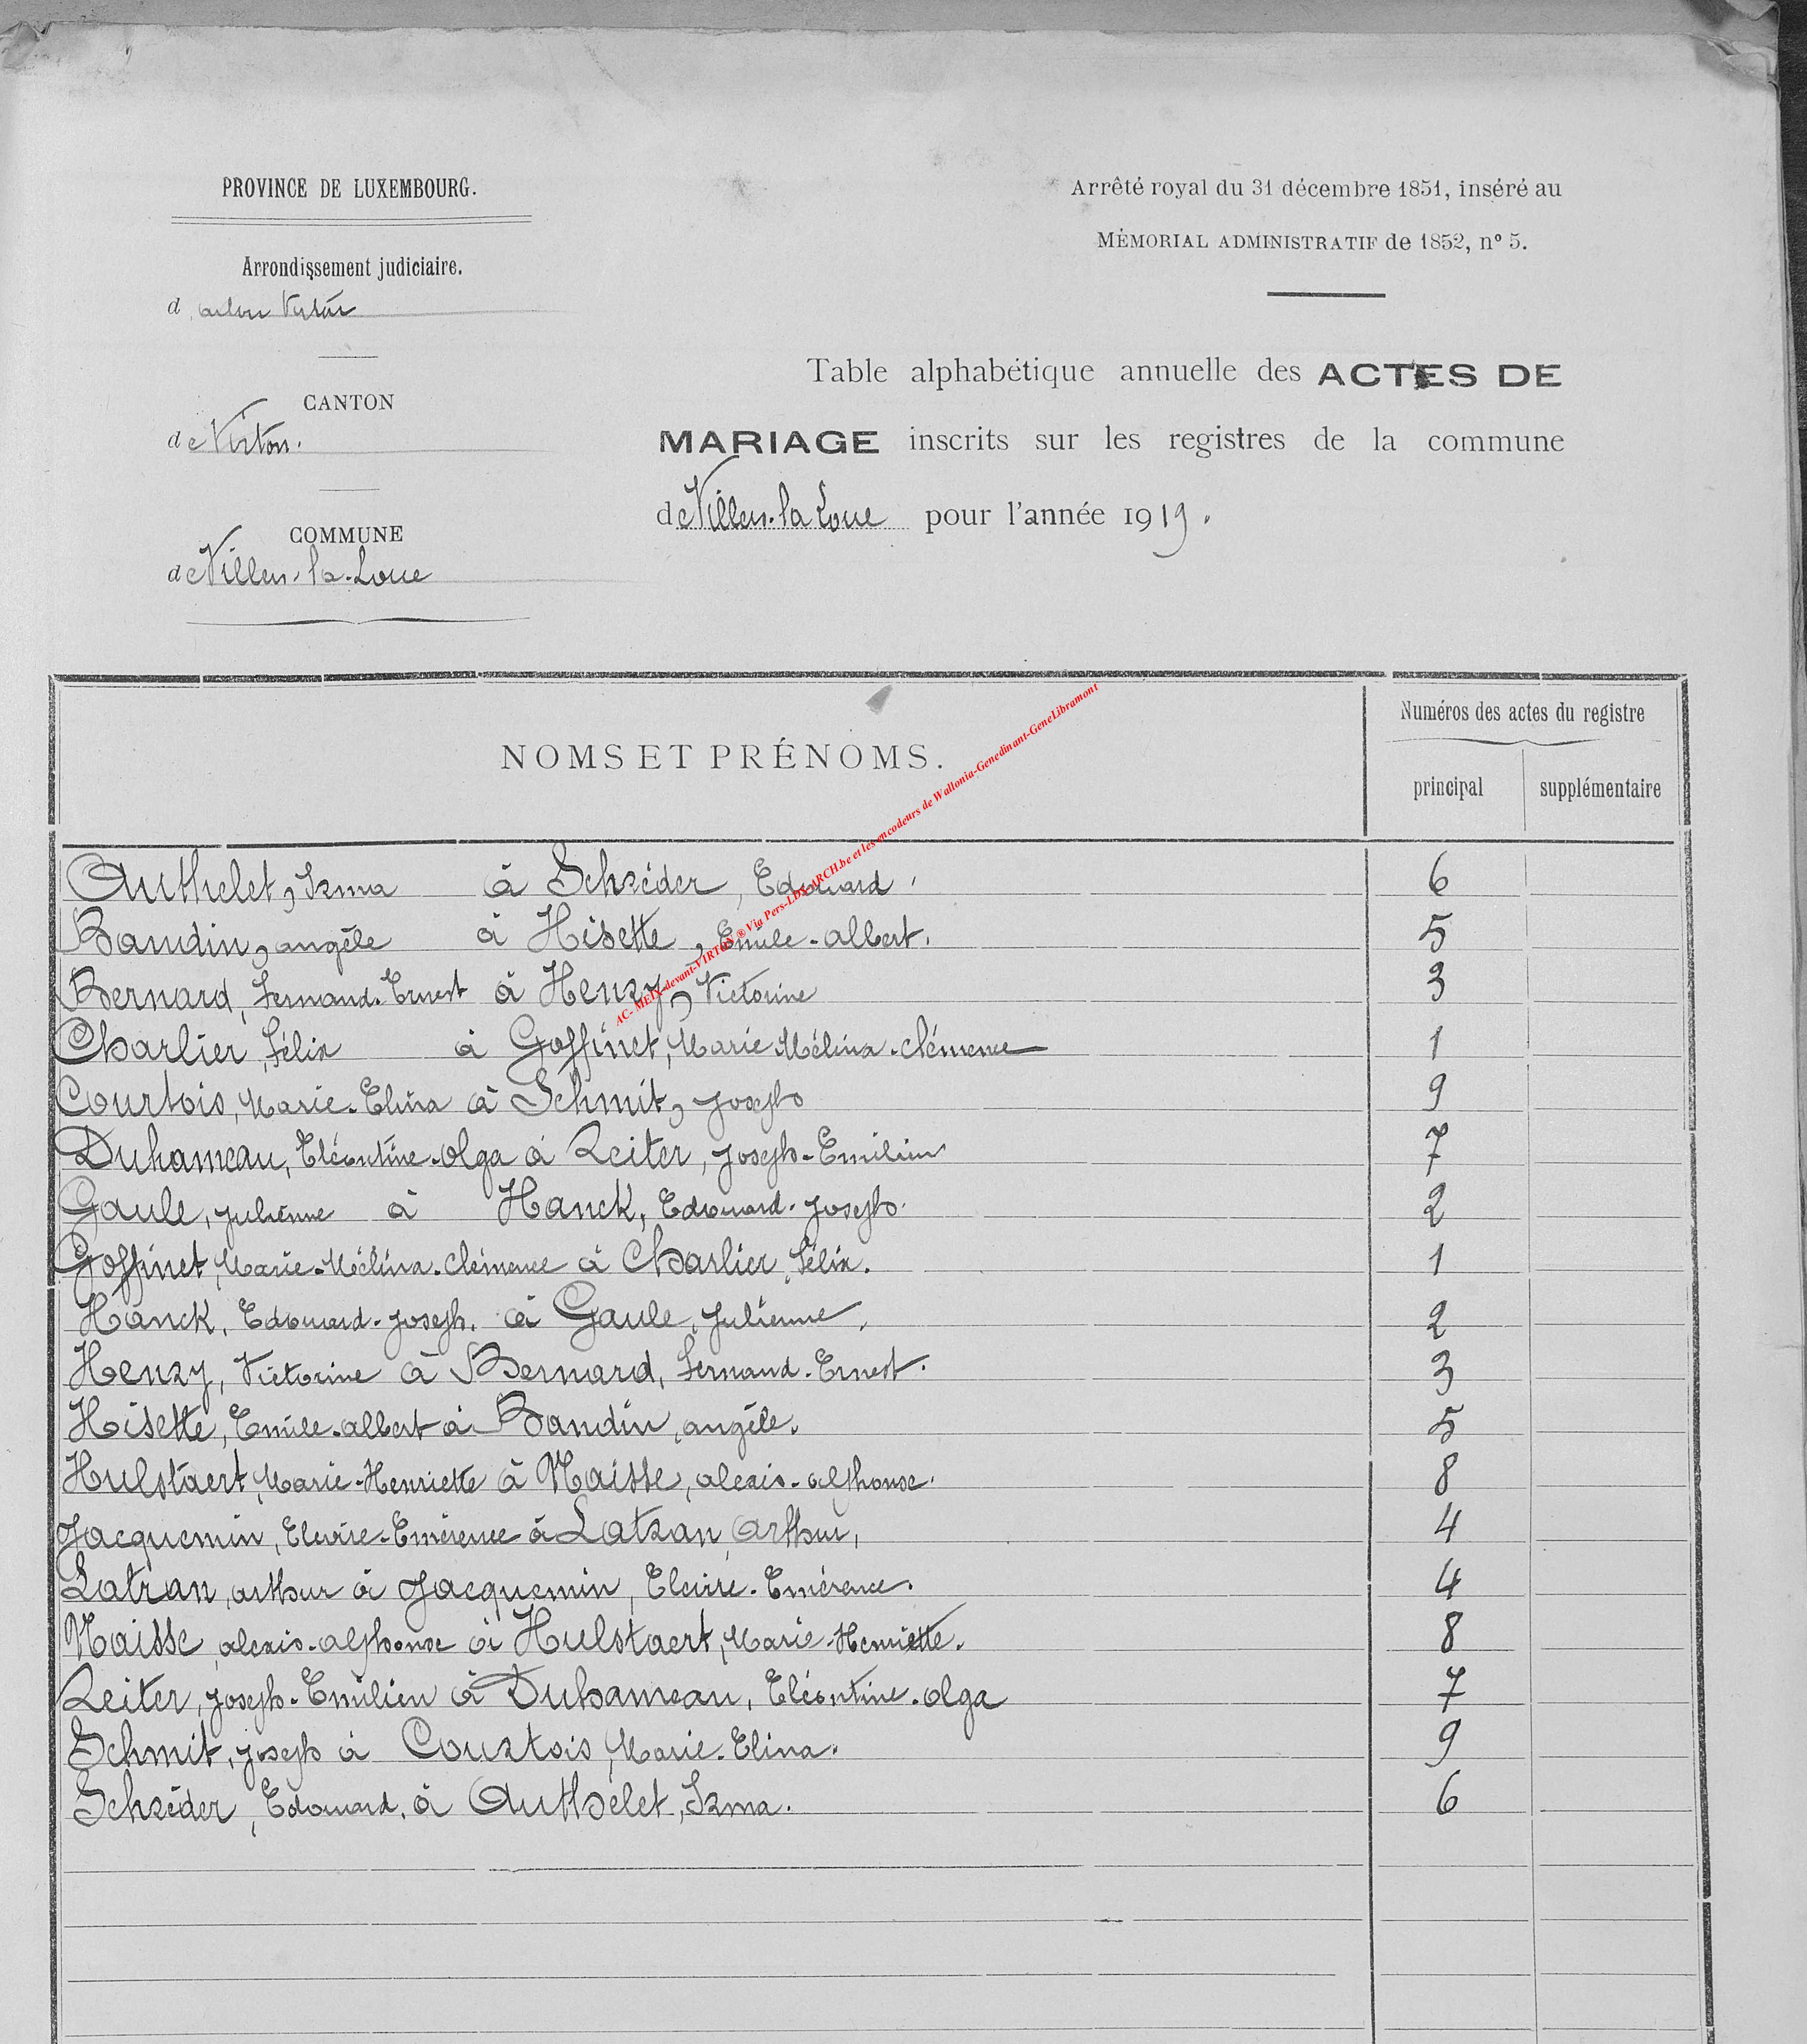 PROVINCE DE LUXEMBOURG.
Arrêté royal du 31 décembre 1851, inséré au
MÉMORIAL ADMINISTRATIF de 1852, nº 5.
Arrondissement judiciaire.
d'arlon Virton
CANTON
de Virton.
COMMUNE
de Villers-la-Loue
Table alphabétique annuelle des ACTES DE
MARIAGE inscrits sur les registres de la commune
de Villers-la Loue pour l'année 1919.
NOMS ET PRÉNOMS.
Numéros des actes du registre
principal
supplémentaire
AC- MEIX-devant-VIRTON ® Via Pers-LUX-ARCH.be et les encodeurs de Wallonia-Genedinant-GeneLibramont
Authelet, Irma à Schréder, Edouard. 6
Baudin, angèle à Hisette, Emile-albert. 5
Bernard, Fernand-Ernest à Henry, Victorine 3
Charlier, Félix à Goffinet, Marie-Mélina-clémence 1
Courtois, Marie-Elina à Schmit, Joseph 9
Duhameau, Eléontine-olga à Reiter, Joseph-Emilien 7
Gaule, Julienne à Hanck, Edouard-Joseph. 2
Goffinet, Marie-Mélina-clémence à Charlier, Félix. 1
Hanck, Edouard-Joseph. à Gaule, Julienne. 2
Henry, Victorine à Bernard, Fernand-Ernest. 3
Hisette, Emile-albert à Baudin, angèle. 5
Hulstaert, Marie-Henriette à Maisse, alexis-alphonse. 8
Jacquemin, Elvire-Emérence à Latran, Arthur, 4
Latran, arthur à Jacquemin, Elvire-Emérence. 4
Maisse, alexis-alphonse à Hulstaert, Marie-Henriette. 8
Reiter, Joseph-Emilien à Duhameau, Eléontine-olga 7
Schmit, Joseph à Courtois, Marie-Elina. 9
Schréder, Edouard, à Authelet, Irma. 6